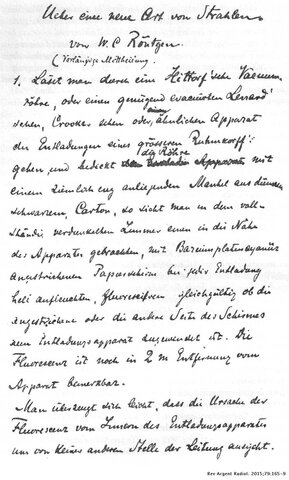 Ueber eine neue Art von Strahlen
von W. C. Röntgen.
(Vorläufige Mittheilung.)
1. Lässt man durch eine Hittorf'sche Vacuum-
röhre, oder einen genügend evacuirten Lenard'-
schen, Crookes'schen oder ähnlichen Apparat
die Entladungen eines grösseren Ruhmkorff's
gehen und bedeckt die Röhre mit
einem ziemlich eng anliegenden Mantel aus dünnem
schwarzem, Carton, so sieht man in dem voll-
ständig verdunkelten Zimmer einen in die Nähe
des Apparates gebrachten, mit Bariumplatincyanür
angestrichenen Papierschirm bei jeder Entladung
hell aufleuchten, fluoresciren gleichgültig ob die
angestrichene oder die andere Seite des Schirmes
dem Entladungsapparat zugewendet ist. Die
Fluorescenz ist noch in 2 m Entfernung vom
Apparat bemerkbar.
Man überzeugt sich leicht, dass die Ursache der
Fluorescenz vom Innern des Entladungsapparates
und von keiner anderen Stelle der Leitung ausgeht.
Rev Argent Radiol. 2015;79:165-9